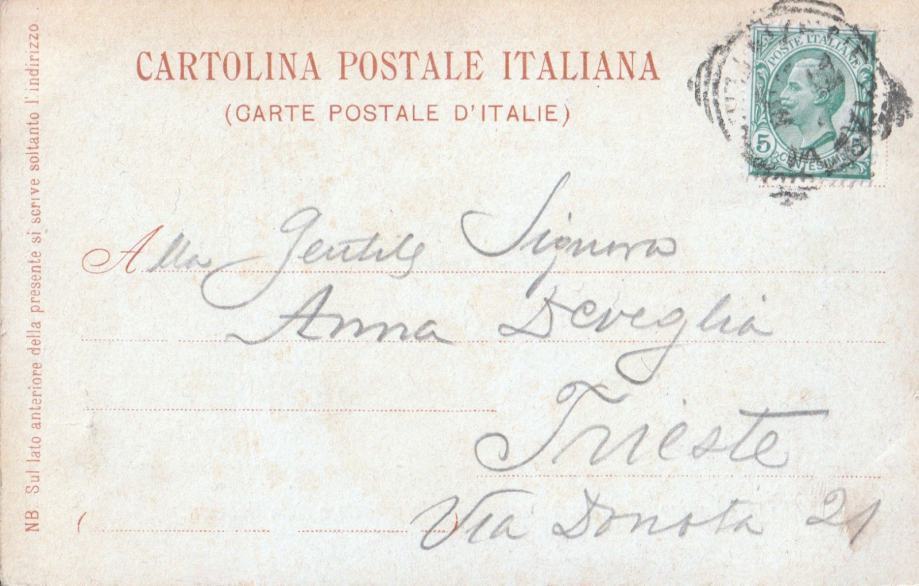 CARTOLINA POSTALE ITALIANA
(CARTE POSTALE D'ITALIE)
POSTE ITALIANE
5 5
CENTESIMI
Alla Gentile Signora
Anna Deveglia
Trieste
Via Donota 21
NB Sul lato anteriore della presente si scrive soltanto l'indirizzo